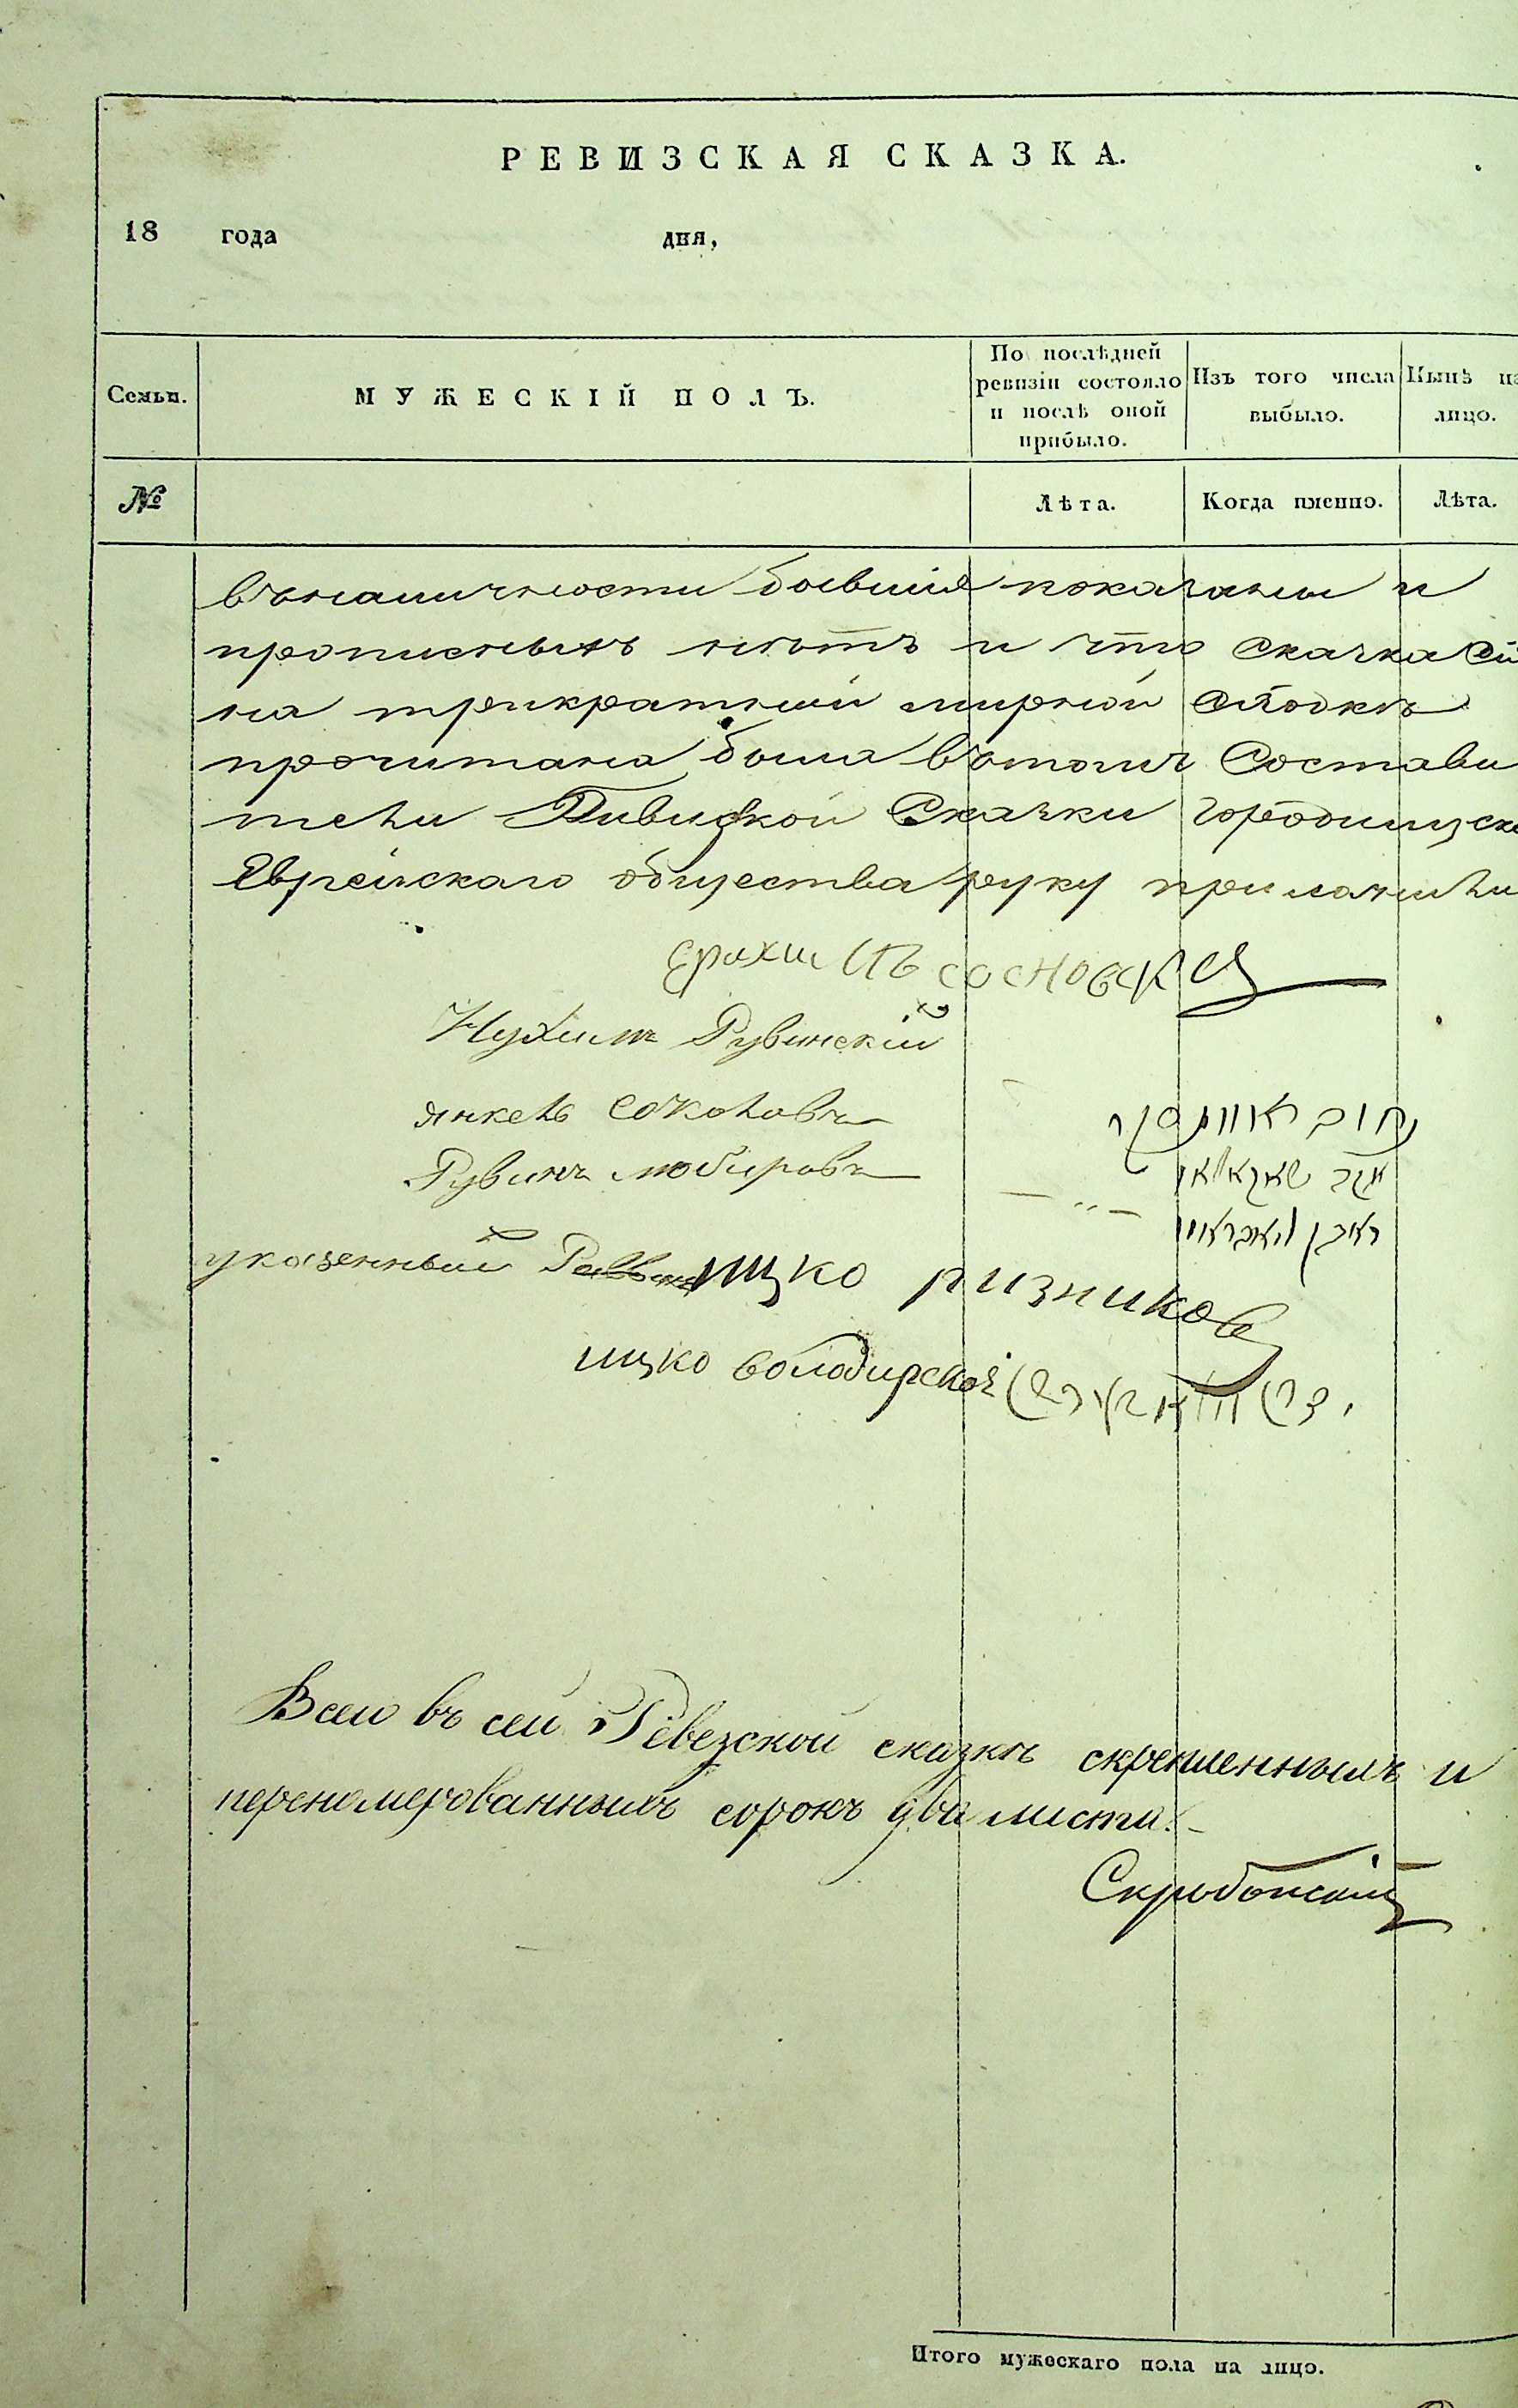 РЕВИЗСКАЯ СКАЗКА.
18 года дня,
Семьи.
МУЖЕСКІЙ ПОЛЪ.
По послѣдней ревизіи состояло и послѣ оной прибыло.
Изъ того числа выбыло.
Нынѣ на лицо.
№
Лѣта.
Когда имянно.
Лѣта.
въ наличности бывшія показаны и
прописныхъ нѣтъ и что Сказка сія
на трикратный мирной сходкѣ
прочитана была вътомъ Состави
тели Ривизкой Сказки городищско
Еврейскаго общества руку приложили
сосновскі
Нухимъ Рувинскій
янкель соколовъ
Рувинъ
נחום ראווינסקי
указенный ицко ризников
ицко володирской
Всего въ сей Ревезской сказкѣ скрепленныхъ и
перенумерованныхъ сорокъ два листа.
Итого мужескаго пола на лицо.